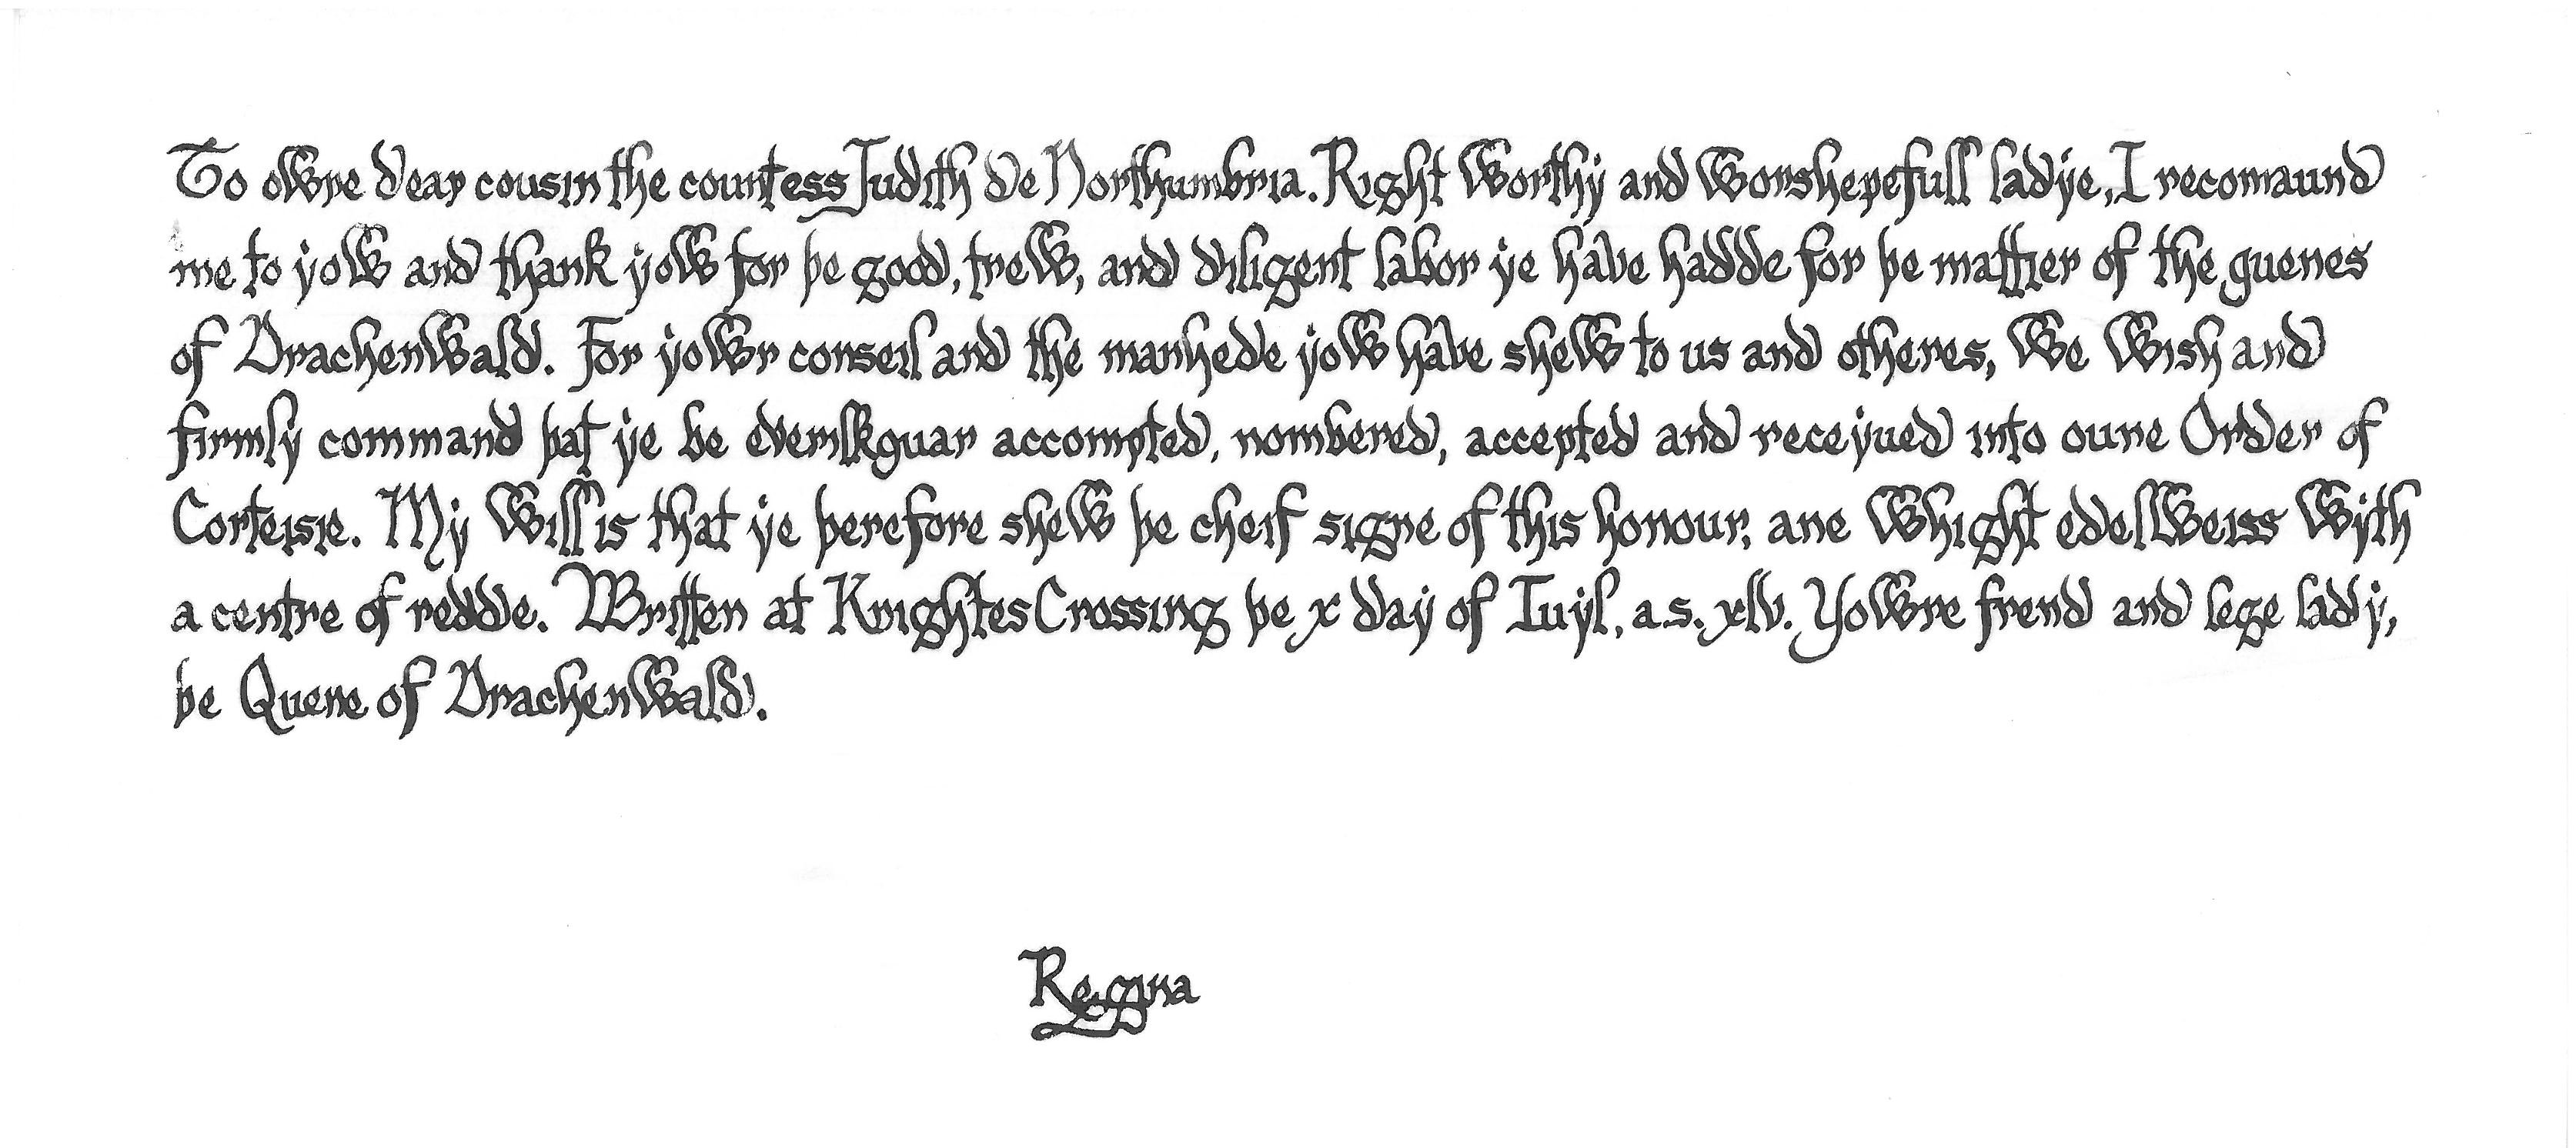 To owre dear cousin the countess Judith de Northumbria. Right worthy and worshepefull ladye, I recomaund
me to yow and thank yow for þe good, trew, and diligent labor ye have hadde for þe mattier of the quenes
of Drachenwald. For yowr conseil and the manhede yow have shew to us and otheres, we wish and
firmly command þat ye be accompted, nombered, accepted and receyued into oure Order of
Corteisie. My will is that ye þerefore shew þe cheif signe of this honour, ane whight edelweiss wyth
a centre of redde. Written at Knightes Crossing þe x day of Iuyl, a.s. xlv. Yowre frend and lege lady,
þe Quene of Drachenwald.
Regina